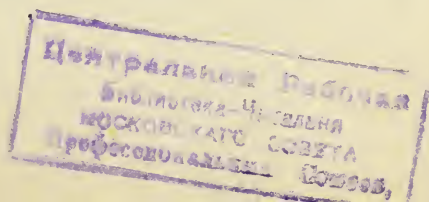 Центральная Рабочая
Библиотека-Читальня
МОСКОВСКАГО СОВѢТА
Професcіональныхъ Союзовъ,